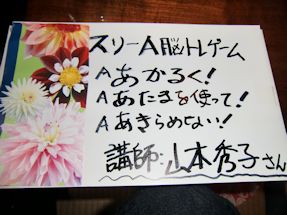 スリーA脳トレゲーム
Aあかるく!
Aあたまを使って!
Aあきらめない!
講師:山本秀子さん